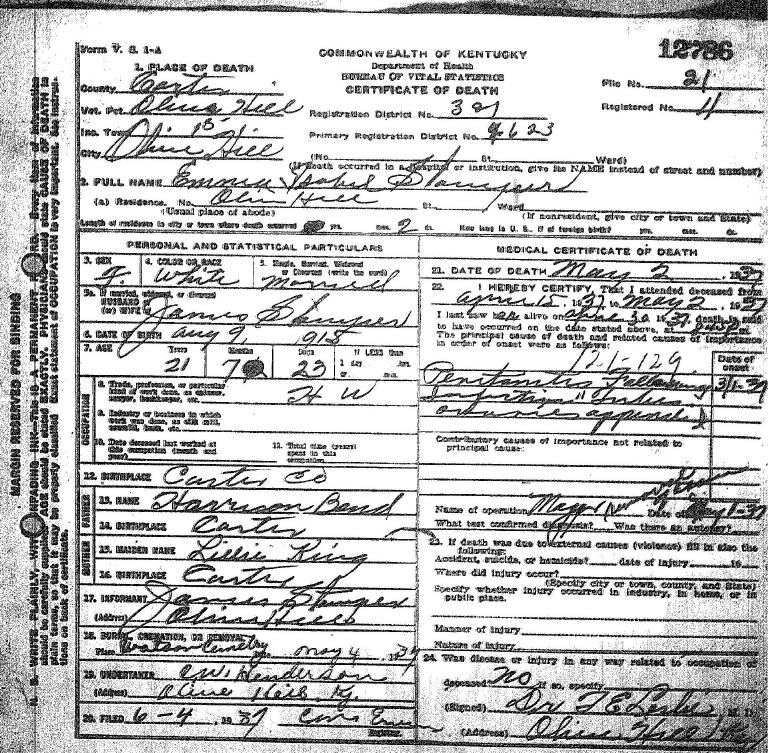 Form V. S. 1-A
COMMONWEALTH OF KENTUCKY
Department of Health
BUREAU OF VITAL STATISTICS
CERTIFICATE OF DEATH
12786
File No. 21
Registered No. 4
1. PLACE OF DEATH
County Carter
Vot. Pct. Olive Hill
Inc. Town
City Olive Hill
Registration District No. 321
Primary Registration District No. 9623
(No. St. Ward)
(If death occurred in a hospital or institution, give its NAME instead of street and number)
2. FULL NAME Emma Isabel Stamper
(a) Residence. No. Olive Hill St. Ward
(Usual place of abode) (If nonresident, give city or town and State)
Length of residence in city or town where death occurred yrs. mos. 2 ds. How long in U. S., if of foreign birth? yrs. mos. ds.
PERSONAL AND STATISTICAL PARTICULARS
3. SEX 4. COLOR OR RACE 5. Single, Married, Widowed
or Divorced (write the word)
F. White Married
5a. If married, widowed, or divorced
HUSBAND of
(or) WIFE of James Stamper
6. DATE OF BIRTH Aug 9, 1915
7. AGE Years Months Days If LESS than
21 23 1 day hrs.
or min.
8. Trade, profession, or particular
kind of work done, as spinner,
sawyer, bookkeeper, etc. H W
9. Industry or business in which
work was done, as silk mill,
sawmill, bank, etc.
10. Date deceased last worked at
this occupation (month and
year)
11. Total time (years)
spent in this
occupation
OCCUPATION
12. BIRTHPLACE Carter Co
FATHER
13. NAME Harrison Bond
14. BIRTHPLACE Carter
MOTHER
15. MAIDEN NAME Lillie King
16. BIRTHPLACE Carter
17. INFORMANT James Stamper
(Address) Olive Hill
18. BURIAL, CREMATION, OR REMOVAL
Place Watson Cemetery Date May 4 1937
19. UNDERTAKER C.W. Henderson
(Address) Olive Hill Ky.
20. FILED 6-4 1937
Registrar.
MEDICAL CERTIFICATE OF DEATH
21. DATE OF DEATH May 2, 1937
22. I HEREBY CERTIFY, That I attended deceased from
April 15, 1937 to May 2, 1937
I last saw alive on April 30 1937, death is said
to have occurred on the date stated above, at m.
The principal cause of death and related causes of importance
in order of onset were as follows:
121-129
Date of
onset
Peritonitis following 3/1-37
Contributory causes of importance not related to
principal cause:
Name of operation Major Date of May 1-37
What test confirmed diagnosis? Was there an autopsy?
23. If death was due to external causes (violence) fill in also the
following:
Accident, suicide, or homicide? date of injury 19
Where did injury occur?
(Specify city or town, county, and State)
Specify whether injury occurred in industry, in home, or in
public place.
Manner of injury
Nature of injury
24. Was disease or injury in any way related to occupation of
deceased? no If so, specify
(Signed) Dr. F E Leslie M. D.
(Address) Olive Hill Ky
MARGIN RESERVED FOR BINDING